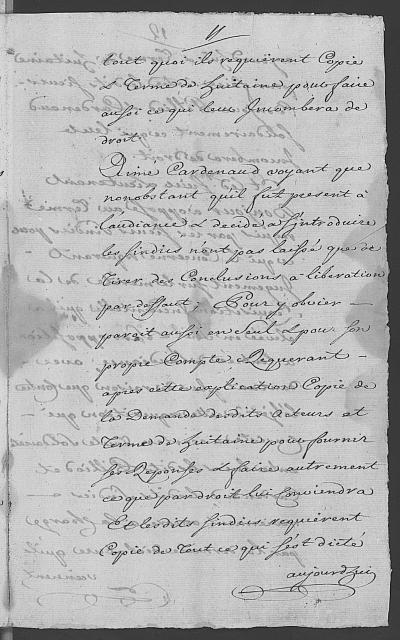 11
tout quoi ils requièrent Copie
& Terme de huitaine pour faire
aussi ce qui leur Incombera de
droit
Aimé Cardenaud voyant que
nonobstant qu'il fut present à
l'audiance & decidé a s'introduire
les sindics n'ont pas laissé que de
Tirer des Conclusions à liberation
par deffaut, Pour y obvier —
paroit aussi en seul & pour son
propre Compte, Requerant —
après cette explication Copie de
la Demande desdits Acteurs et
Terme de huitaine pour fournir
ses Reponses & faire autrement
ce que par droit lui Conviendra
Et lesdits sindics requièrent
Copie de Tout ce qui s'est dicté
aujourdhui